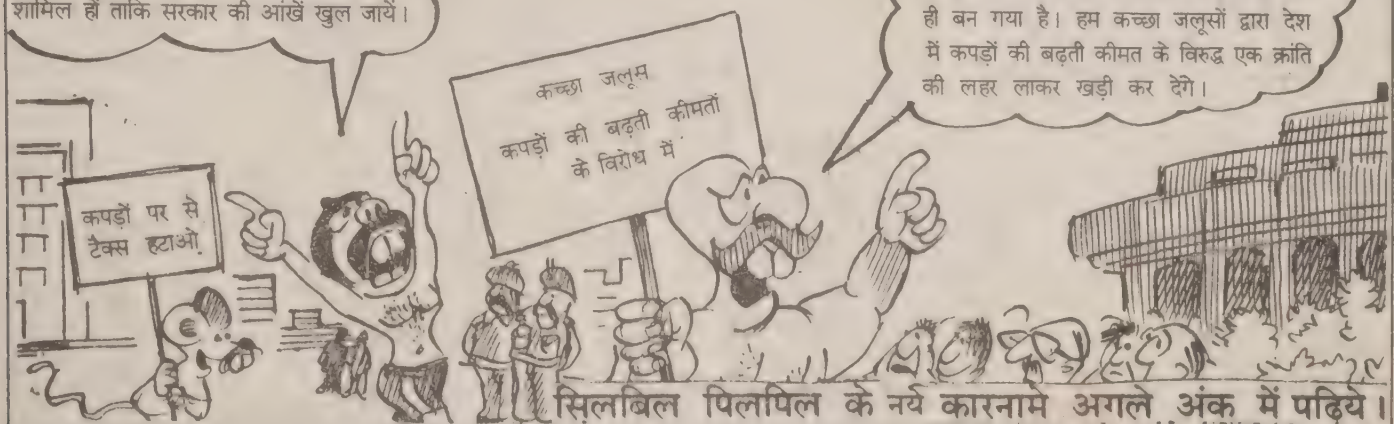 शामिल हों ताकि सरकार की आंखें खुल जायें।
ही बन गया है। हम कच्छा जलूसों द्वारा देश
में कपड़ों की बढ़ती कीमत के विरुद्ध एक क्रांति
की लहर लाकर खड़ी कर देंगे।
कच्छा जलूस
कपड़ों की बढ़ती कीमतों
के विरोध में
कपड़ों पर से
टैक्स हटाओ
सिलबिल पिलपिल के नये कारनामे अगले अंक में पढ़िये।